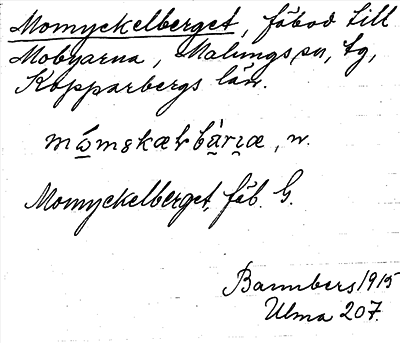 Momyckelberget, fäbod till
Mobyarna, Malungs sn, tg,
Kopparbergs län.
n.
Momyckelberget, fäb. G.
Bannbers 1915
Ulma 207.